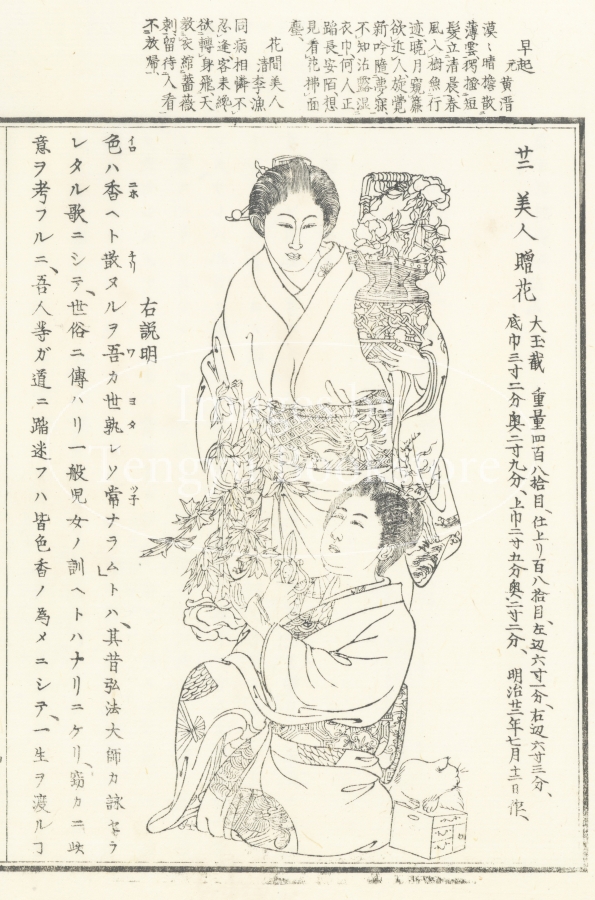 早起
元 黄溍
漠〻晴檐散
薄雲獨搔短
髪立清晨春
風入樹魚行
迹曉月窺簾
欲近人旋覺
新吟隨夢寐
不知沾露濕
衣巾何人正
踏長安陌狽
見看花拂面
塵
花間美人
清 李漁
同病相憐不
忍逢客来總
欲轉身飛天
教衣綰薔薇
刺留待人看
不放帰
廿二 美人贈花
大玉截 重量四百八拾目、仕上リ百八拾目、左辺六寸一分、右辺六寸三分、
底巾三寸二分奥二寸九分、上巾二寸五分奥二寸二分、 明治廿二年七月十二日作、
右説明
色ハ香ヘト散ヌルヲ吾カ世孰レソ常ナラムトハ、其昔弘法大師カ詠セラ
イロ ニホ チリ ワ ヨタ ツ子
レタル歌ニシテ、世俗ニ傳ハリ一般児女ノ訓ヘトハナリニケリ、窃カニ此
意ヲ考フルニ、吾人等ガ道ニ踏迷フハ皆色香ノ為メニシテ、一生ヲ渡ルヿ
Images by
Tengu Bookstore